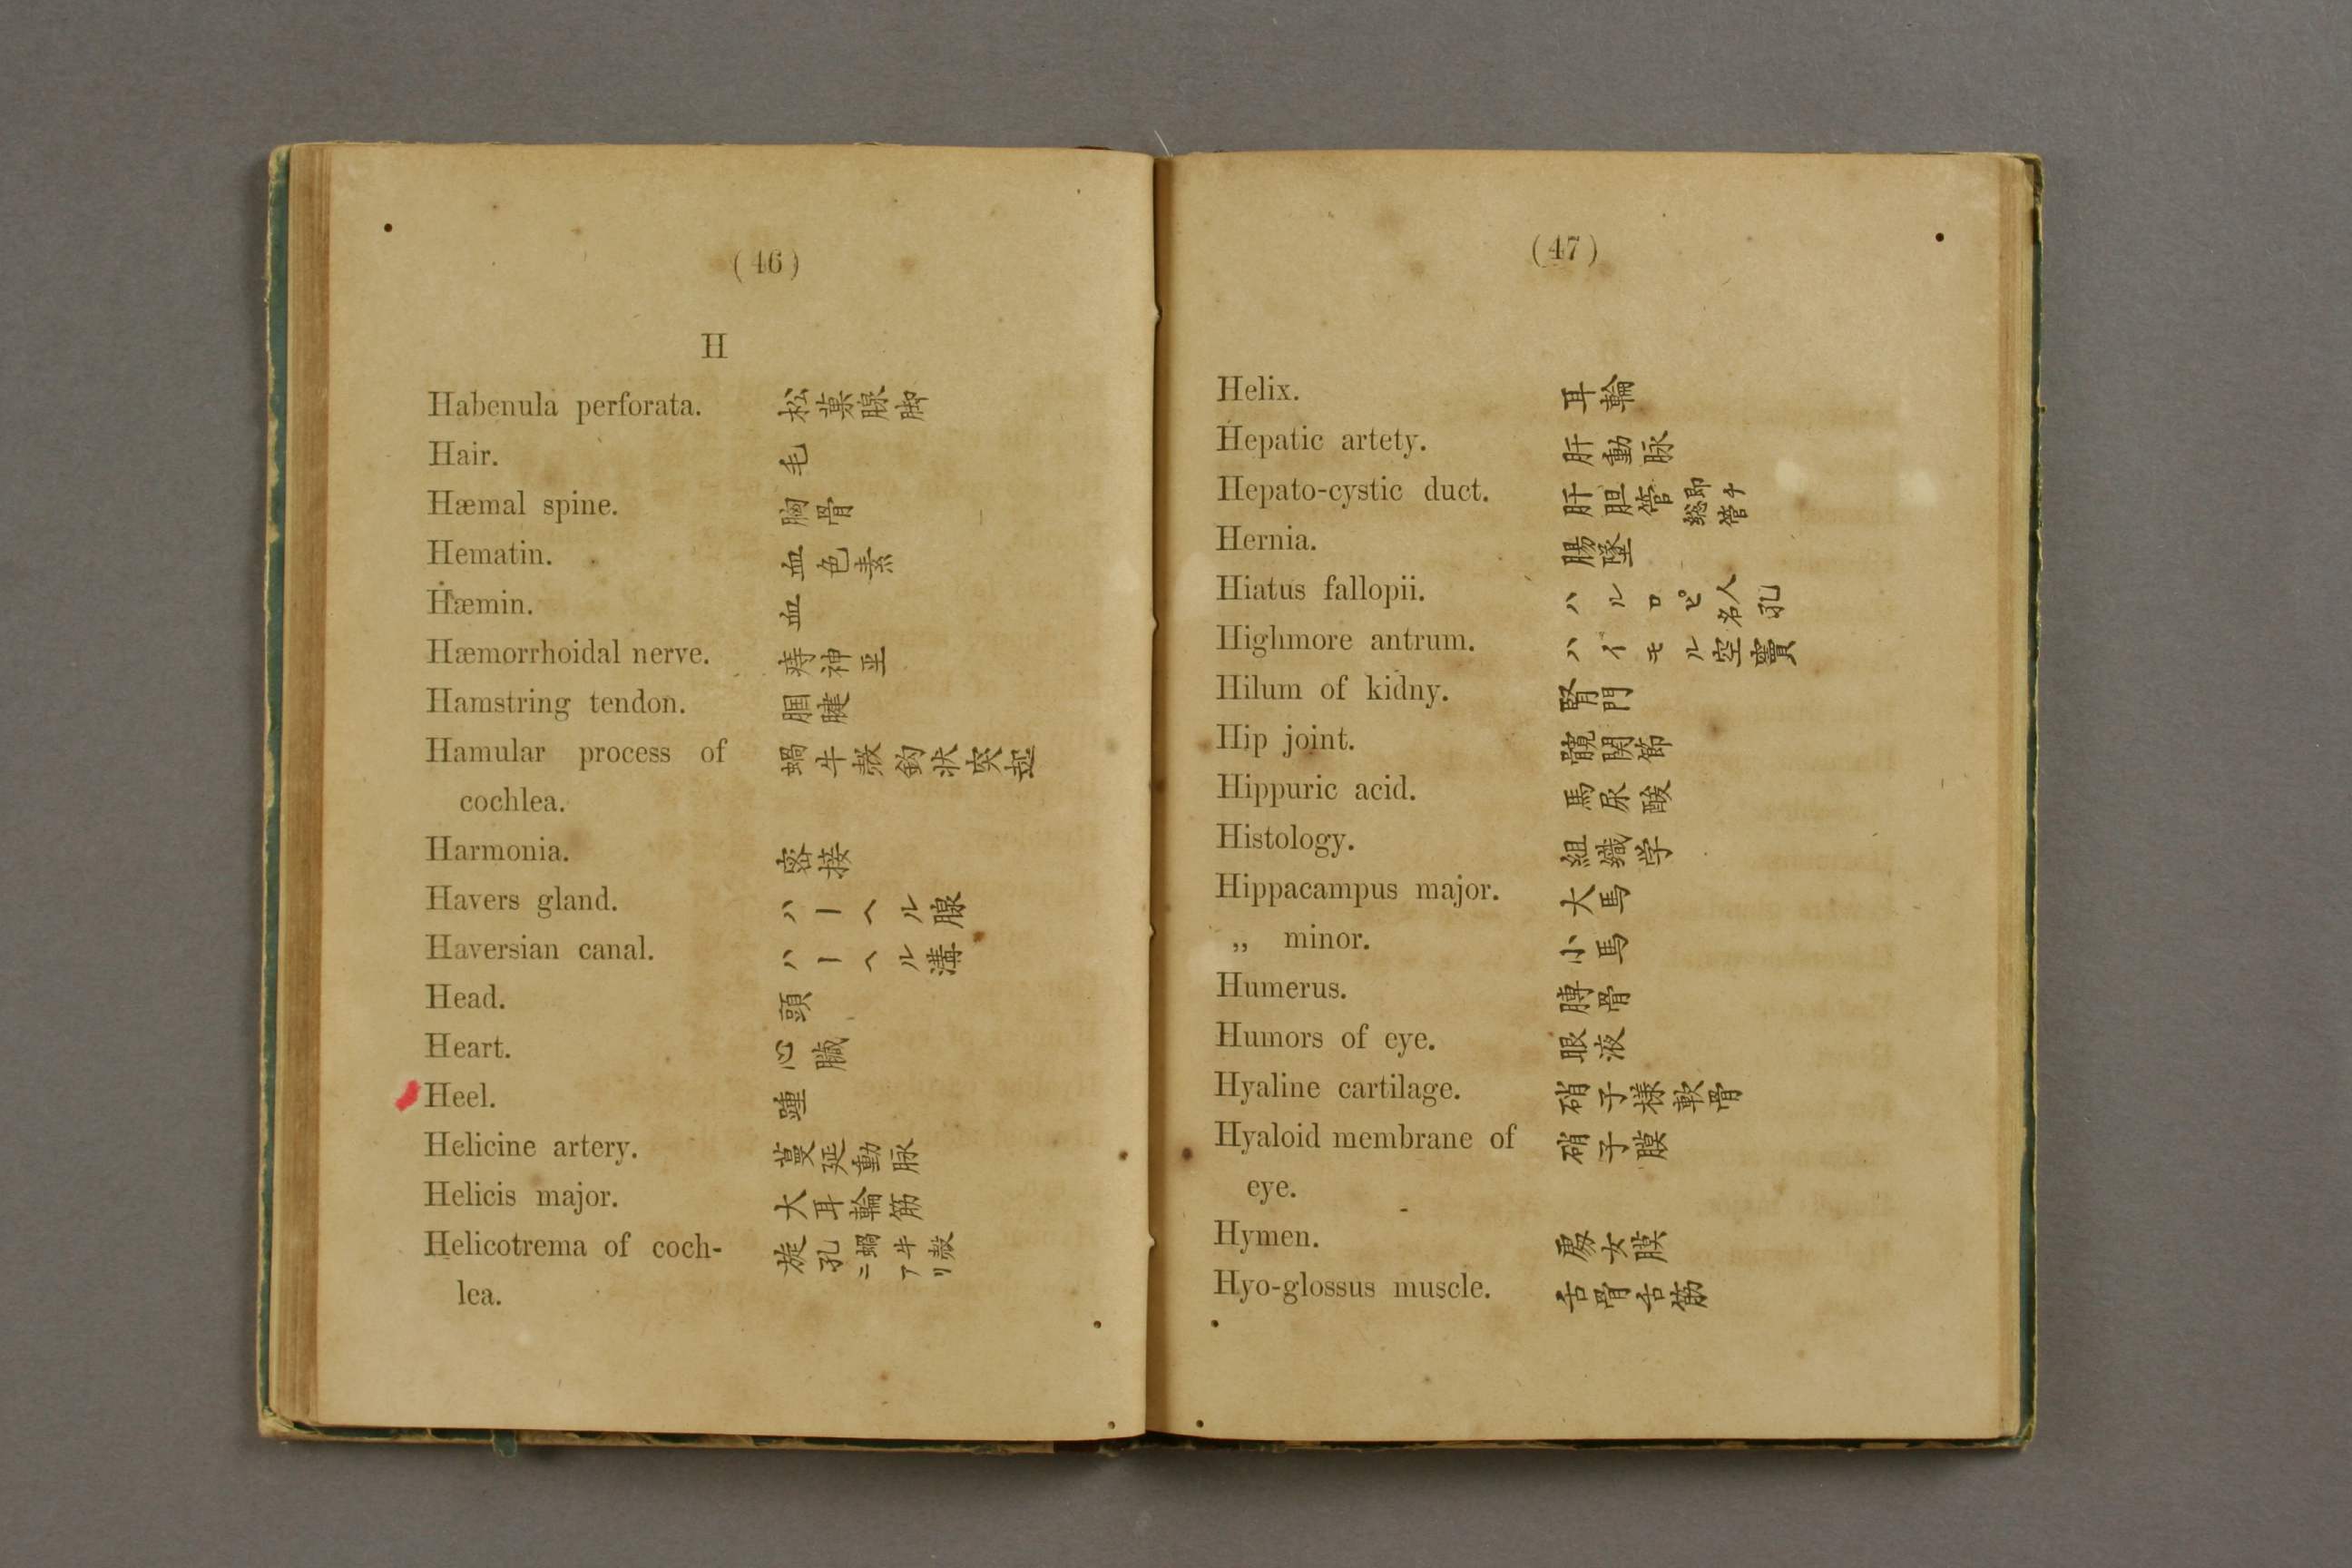 (46)
H
Habenula perforata. 松菓腺脚
Hair. 毛
Hæmal spine. 胸骨
Hematin. 血色素
Hæmin. 血
Hæmorrhoidal nerve. 痔神坙
Hamstring tendon. 膕腱
Hamular process of 蝸牛殻鈎状突起
cochlea.
Harmonia. 密接
Havers gland. ハーヘル腺
Haversian canal. ハーヘル溝
Head. 頭
Heart. 心臓
Heel. 踵
Helicine artery. 蔓延動脉
Helicis major. 大耳輪筋
Helicotrema of coch- 旋孔蝸牛殻ニアリ
lea.
(47)
Helix. 耳輪
Hepatic artety. 肝動脉
Hepato-cystic duct. 肝胆管即チ総管
Hernia. 腸墜
Hiatus fallopii. ハルロピ人名孔
Highmore antrum. ハイモル空竇
Hilum of kidny. 腎門
Hip joint. 髖関節
Hippuric acid. 馬尿酸
Histology. 組織学
Hippacampus major. 大馬
„ minor. 小馬
Humerus. 膊骨
Humors of eye. 眼液
Hyaline cartilage. 硝子様軟骨
Hyaloid membrane of 硝子膜
eye.
Hymen. 處女膜
Hyo-glossus muscle. 舌骨舌筋